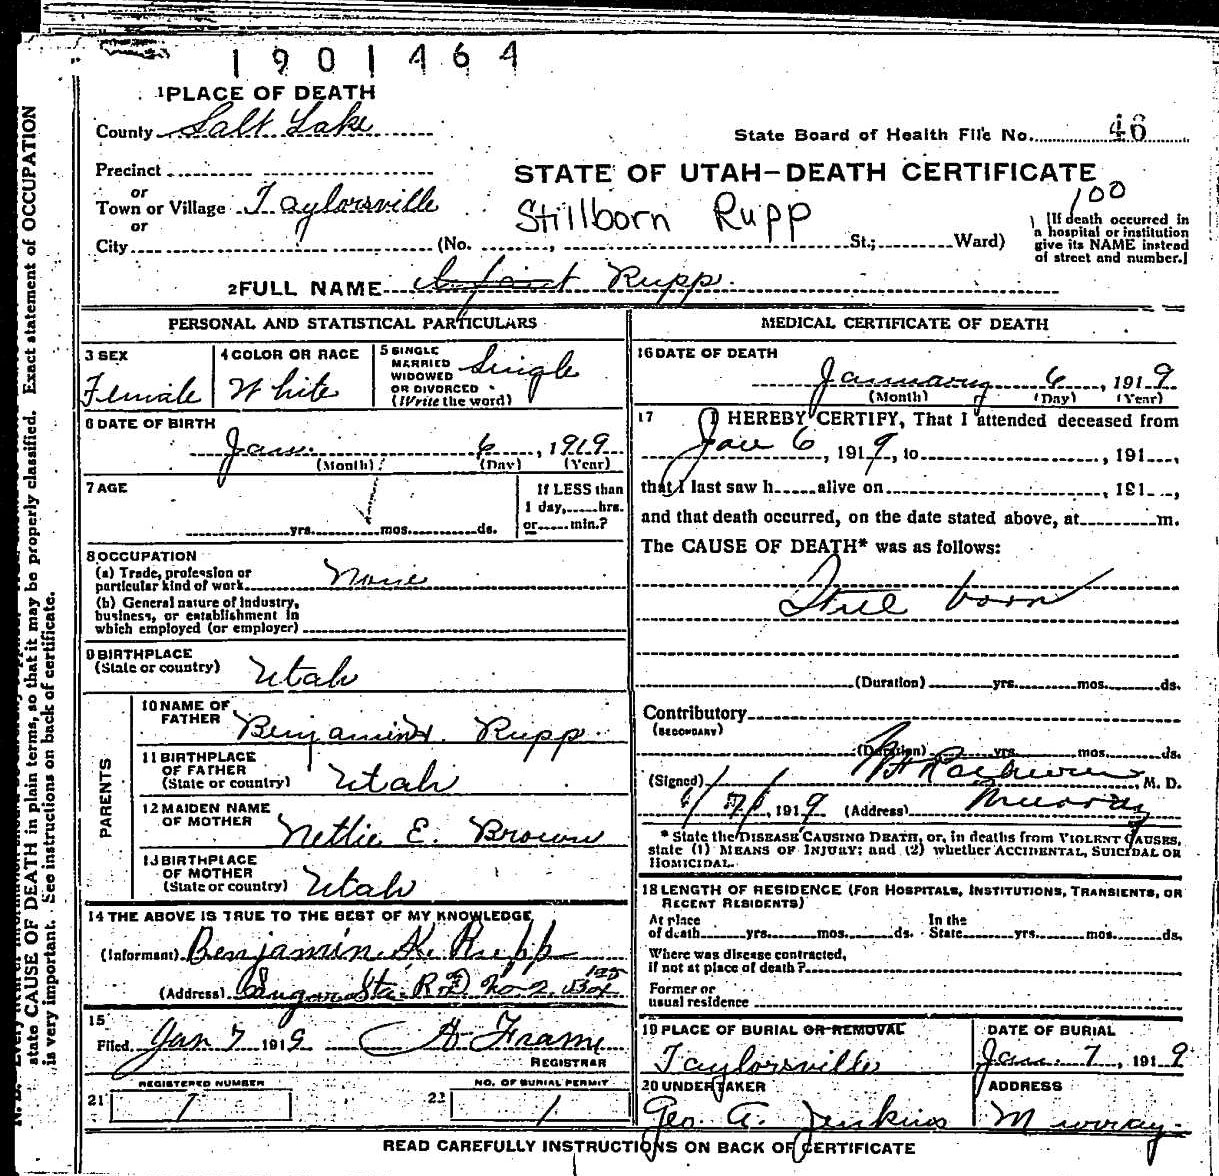 1901464
1 PLACE OF DEATH
County Salt Lake
State Board of Health File No. 46
Precinct
STATE OF UTAH—DEATH CERTIFICATE
or
Town or Village Taylorsville
Stillborn Rupp
100
or
City (No. , St.; Ward)
[If death occurred in
a hospital or institution
give its NAME instead
of street and number.]
2 FULL NAME Infant Rupp.
PERSONAL AND STATISTICAL PARTICULARS
3 SEX
Female
4 COLOR OR RACE
White
5 SINGLE
MARRIED
WIDOWED
OR DIVORCED
(Write the word)
Single
6 DATE OF BIRTH
Jan. 6, 1919
(Month) (Day) (Year)
7 AGE
yrs. mos. ds.
If LESS than
1 day, hrs.
or min.?
8 OCCUPATION
(a) Trade, profession or
particular kind of work None
(b) General nature of industry,
business, or establishment in
which employed (or employer)
9 BIRTHPLACE
(State or country) Utah
PARENTS
10 NAME OF
FATHER Benjamin Rupp.
11 BIRTHPLACE
OF FATHER
(State or country) Utah
12 MAIDEN NAME
OF MOTHER Nettie E. Brown
13 BIRTHPLACE
OF MOTHER
(State or country) Utah
14 THE ABOVE IS TRUE TO THE BEST OF MY KNOWLEDGE
(Informant) Benjamin K. Rupp
(Address) Sugar Sta. R.D. No 2 Box 125
15
Filed Jan 7 1919 A Frame
REGISTRAR
REGISTERED NUMBER
21 1
NO. OF BURIAL PERMIT
22 1
MEDICAL CERTIFICATE OF DEATH
16 DATE OF DEATH
January 6, 1919
(Month) (Day) (Year)
17 I HEREBY CERTIFY, That I attended deceased from
Jan 6, 1919, to , 191 ,
that I last saw h alive on , 191 ,
and that death occurred, on the date stated above, at m.
The CAUSE OF DEATH* was as follows:
Still born
(Duration) yrs. mos. ds.
Contributory
(SECONDARY)
(Duration) yrs. mos. ds.
(Signed) , M. D.
, 1919 (Address) Murray
* State the DISEASE CAUSING DEATH, or, in deaths from VIOLENT CAUSES,
state (1) MEANS OF INJURY; and (2) whether ACCIDENTAL, SUICIDAL OR
HOMICIDAL.
18 LENGTH OF RESIDENCE (FOR HOSPITALS, INSTITUTIONS, TRANSIENTS, OR
RECENT RESIDENTS)
At place In the
of death yrs. mos. ds. State yrs. mos. ds.
Where was disease contracted,
if not at place of death?
Former or
usual residence
19 PLACE OF BURIAL OR REMOVAL
Taylorsville
DATE OF BURIAL
Jan. 7, 1919
20 UNDERTAKER
Geo. A. Jenkins
ADDRESS
Murray.
READ CAREFULLY INSTRUCTIONS ON BACK OF CERTIFICATE
state CAUSE OF DEATH in plain terms, so that it may be properly classified. Exact statement of OCCUPATION
is very important. See instructions on back of certificate.